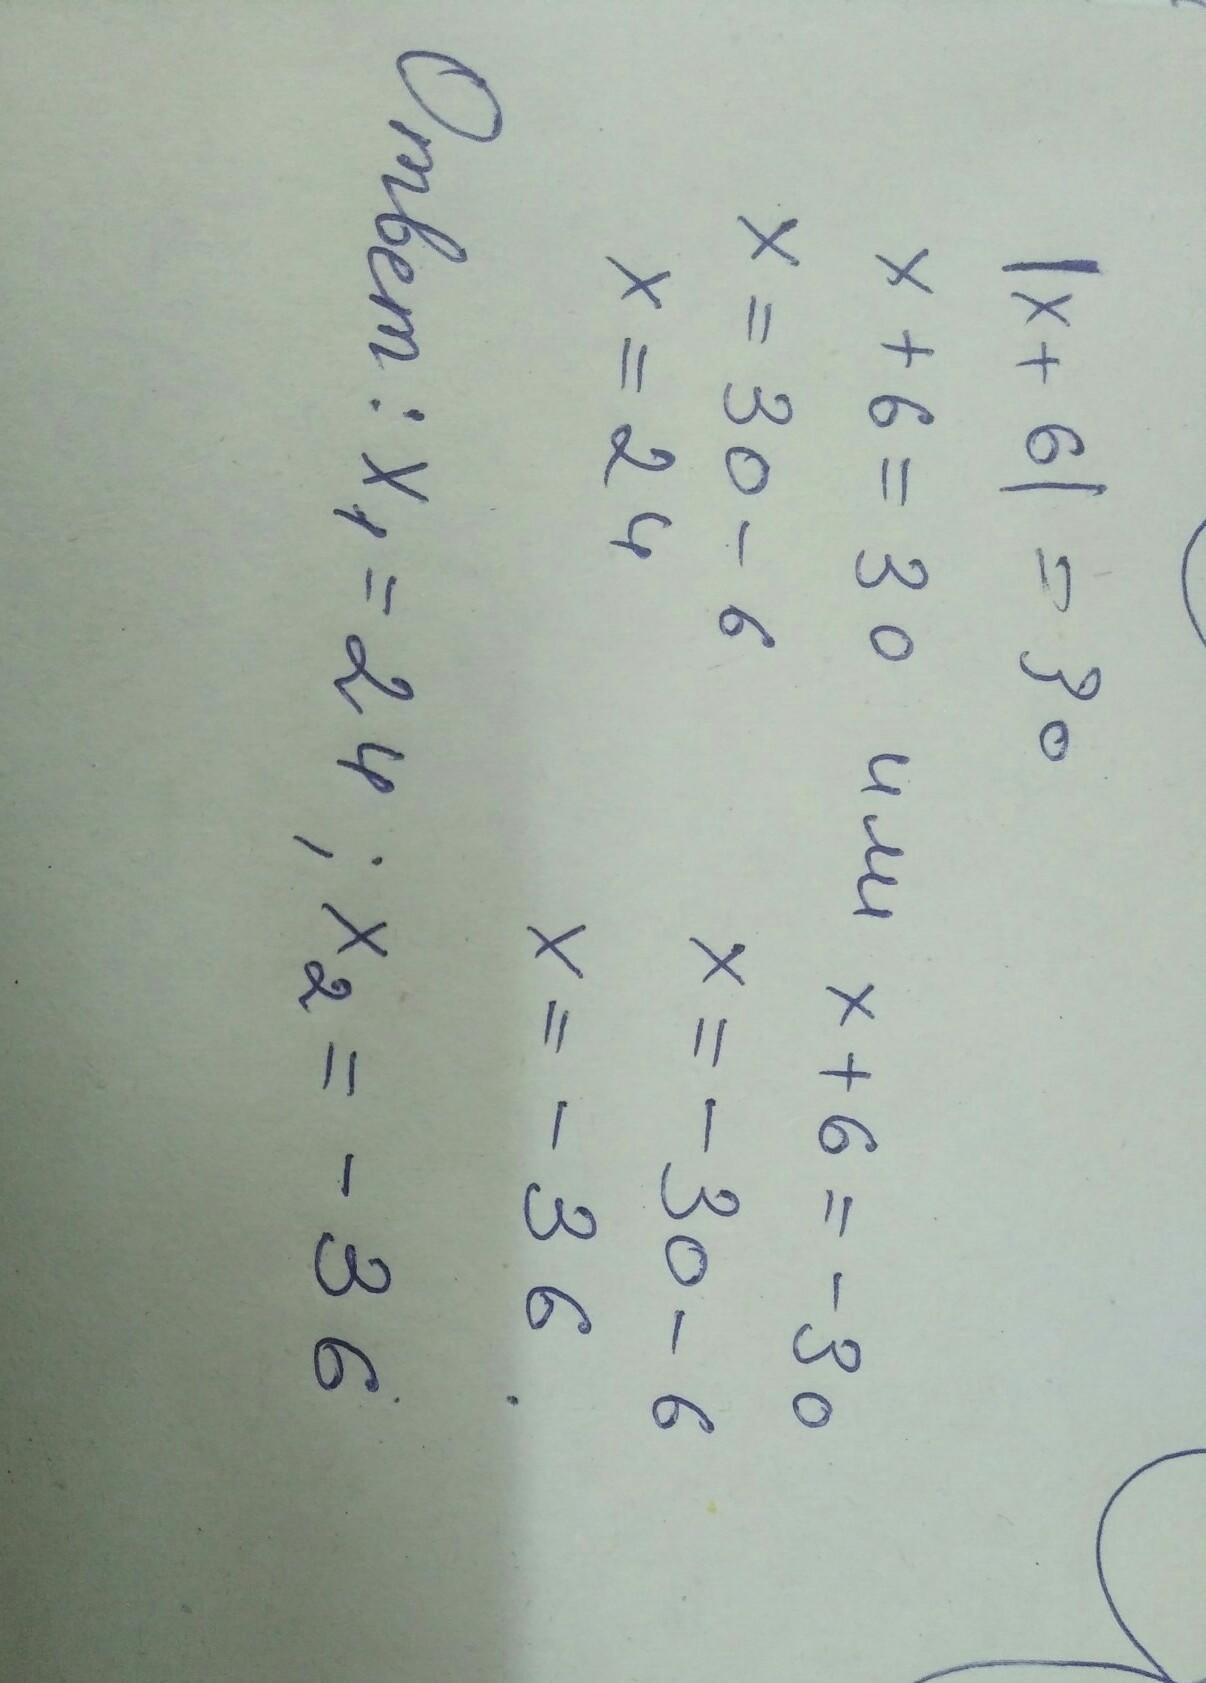 |x + 6| = 30
x + 6 = 30 или x + 6 = - 30
x = 30 - 6 x = - 30 - 6
x = 24 x = - 36
Ответ: x₁ = 24; x₂ = - 36